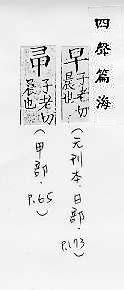 四聲篇海
早 子老切 晨也
(元刊本·日部·P.173)
𠦝 子老切 晨也
(甲部·P.65)